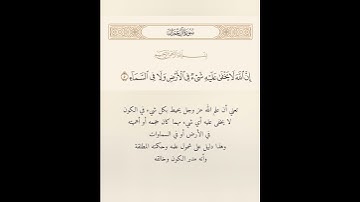 سورة آل عمران
بسم الله الرحمن الرحيم
إِنَّ ٱللَّهَ لَا يَخْفَىٰ عَلَيْهِ شَىْءٌ فِى ٱلْأَرْضِ وَلَا فِى ٱلسَّمَآءِ ٥
تعني أن علم الله عز وجل يحيط بكل شيء في الكون
لا يخفى عليه أي شيء مهما كان حجمه أو أهميته
في الأرض أو في السماوات
وهذا دليل على شمول علمه وحكمته المطلقة
وأنه مدبر الكون وخالقه